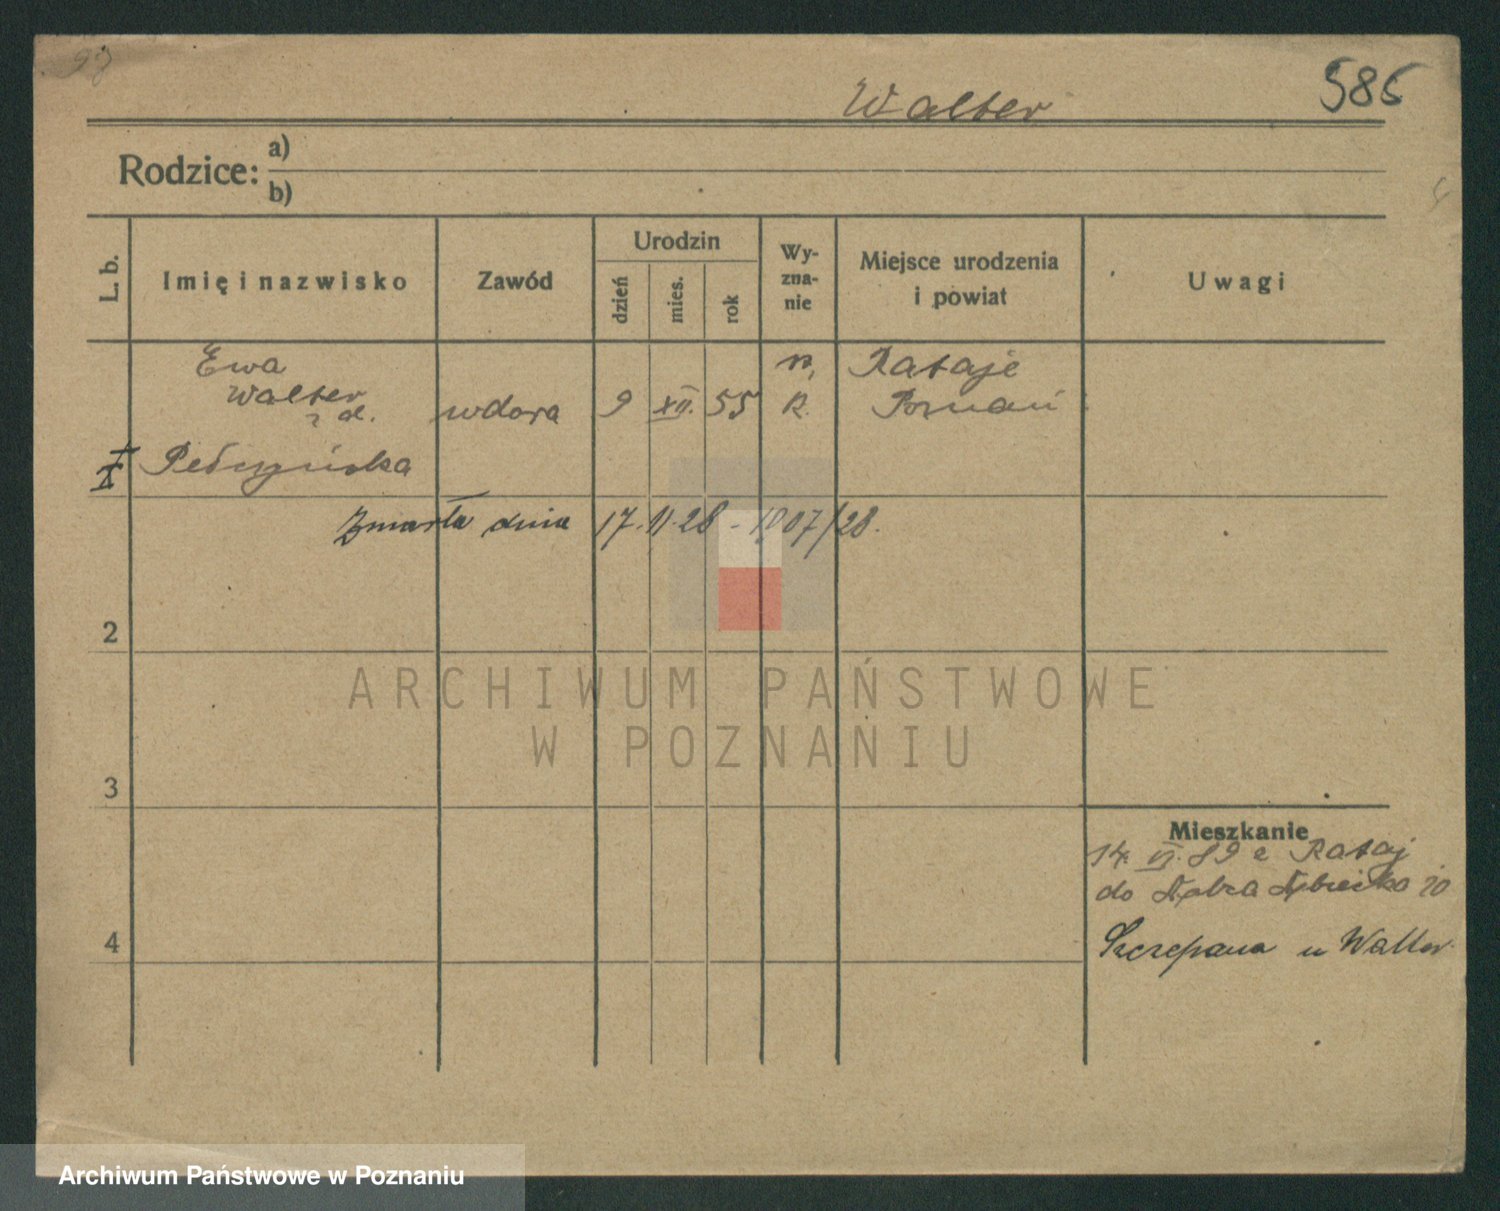 Walter
585
Rodzice: a)
b)
L. b.
Imię i nazwisko
Zawód
Urodzin
dzień
mies.
rok
Wy-
zna-
nie
Miejsce urodzenia
i powiat
Uwagi
Ewa
Walter
z d.
wdowa
9
XII.
55
R.
Rataje
Poznań
Zmarła dnia 17.11.28 - 1007/28.
2
3
4
Mieszkanie
14. VI. 89 z Rataj
do
Szczepana u Walter
ARCHIWUM PAŃSTWOWE
W POZNANIU
Archiwum Państwowe w Poznaniu